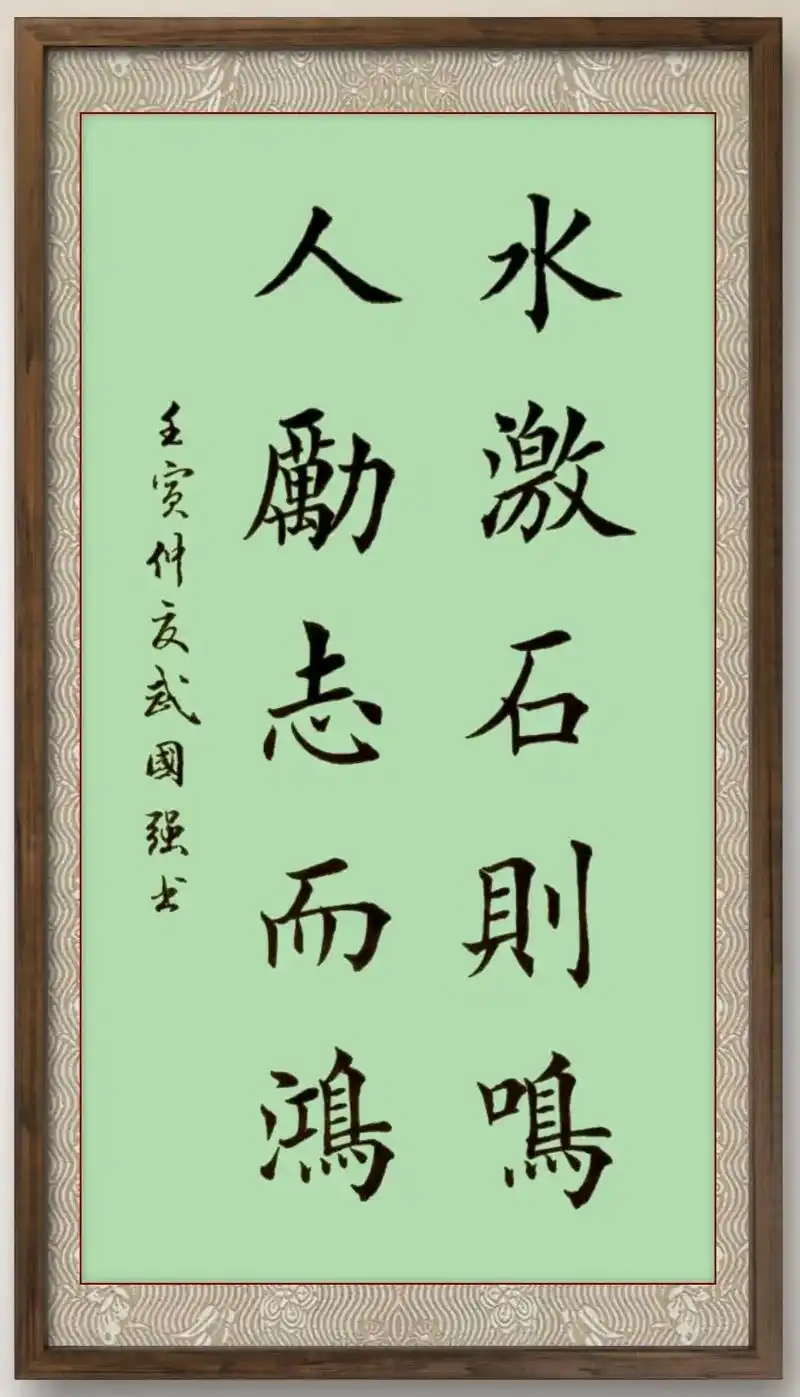 水激石則鳴
人勵志而鴻
壬寅仲夏武國强书